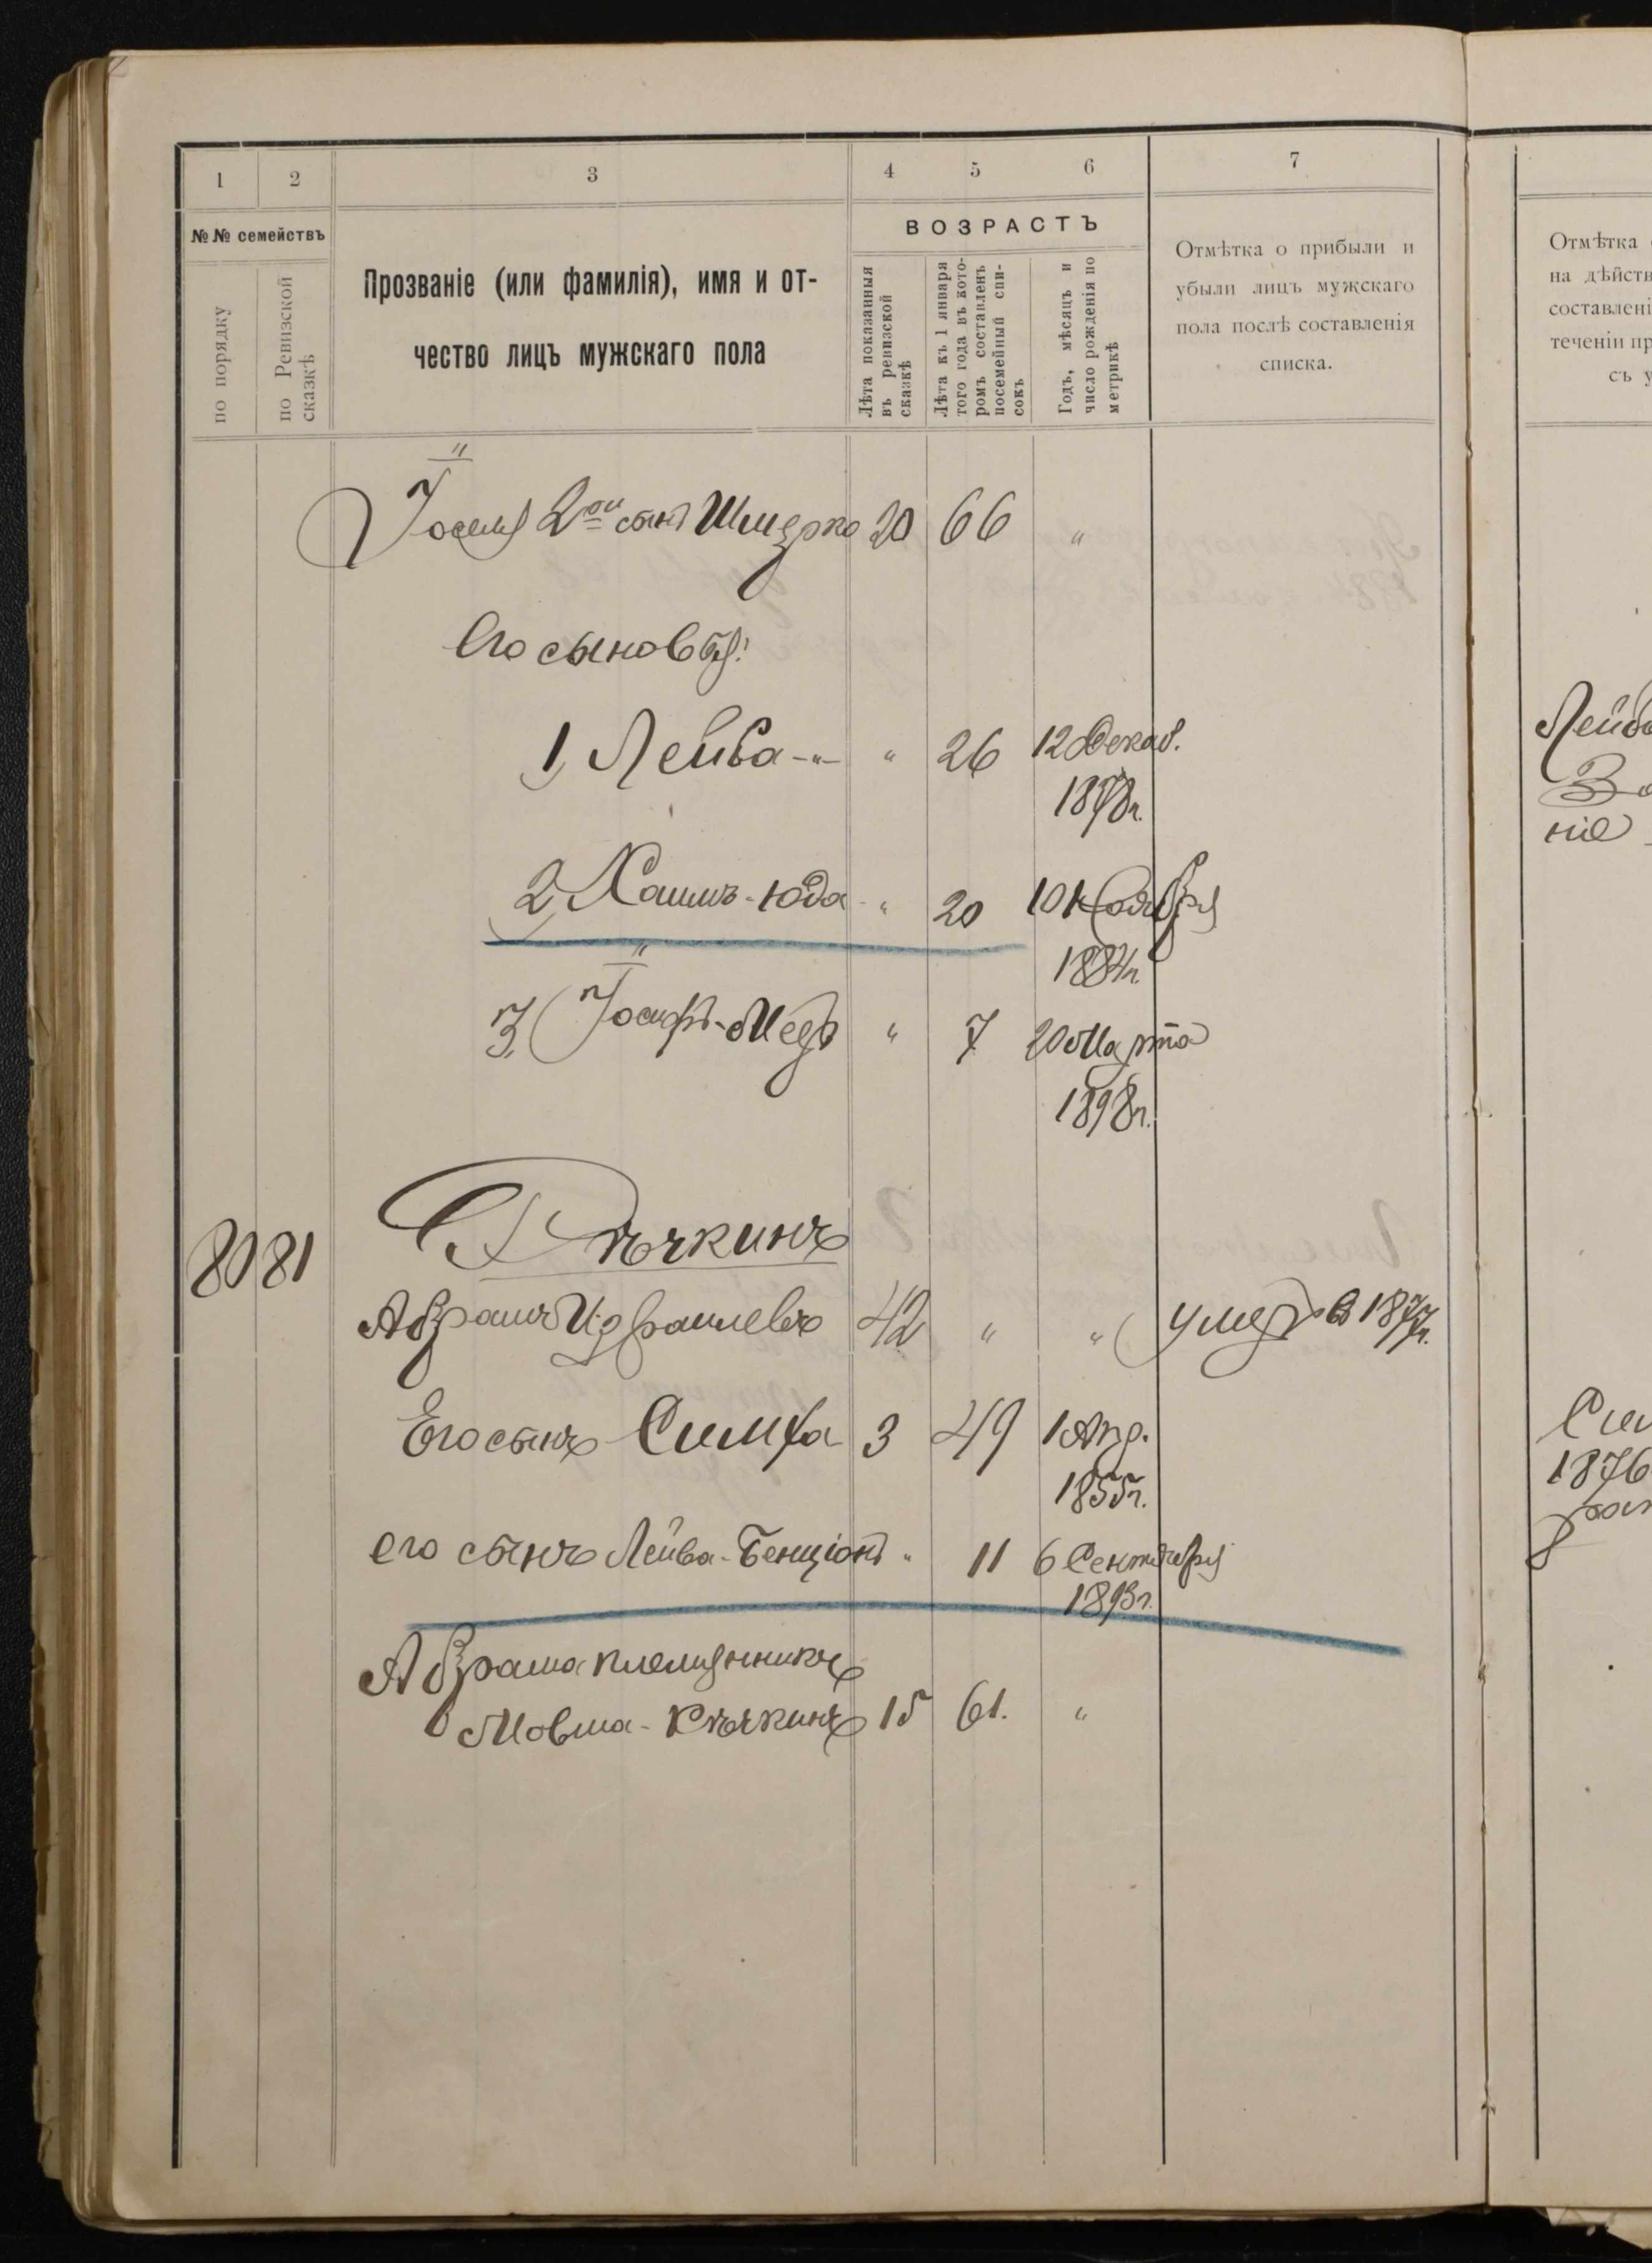 1 2 3 4 5 6 7
№№ семействъ
ВОЗРАСТЪ
по порядку
по Ревизской сказкѣ
Прозваніе (или фамилія), имя и от-
чество лицъ мужскаго пола
Лѣта показанныя
въ ревизской
сказкѣ
Лѣта къ 1 января
того года въ кото-
ромъ составленъ
посемейный спи-
сокъ
Годъ, мѣсяцъ и
число рожденія по
метрикѣ
Отмѣтка о прибыли и
убыли лицъ мужскаго
пола послѣ составленія
списка.
Іоселя 2ой сынъ Шмерко 20 66 "
Его сыновья:
1, Лейба -"- " 26 12 Декаб.
1878г.
2, Хаимъ-Юда " 20 10 Ноября
1884г.
3, Іосифъ-Мееръ " 7 20 Марта
1898г.
80 81 Рѣчкинъ
Абрамъ Израилевъ 42 " " умеръ въ 1877г.
Его сынъ Симха 3 49 1 Апр.
1855г.
его сынъ Лейба-Бенціонъ " 11 6 Сентября
1893г.
Абрама племянникъ
Мовша-Рѣчкинъ 15 61. "
Отмѣтка
на дѣйств
составлені
теченіи пр
съ у
Лейб
ніе
Сим
1876